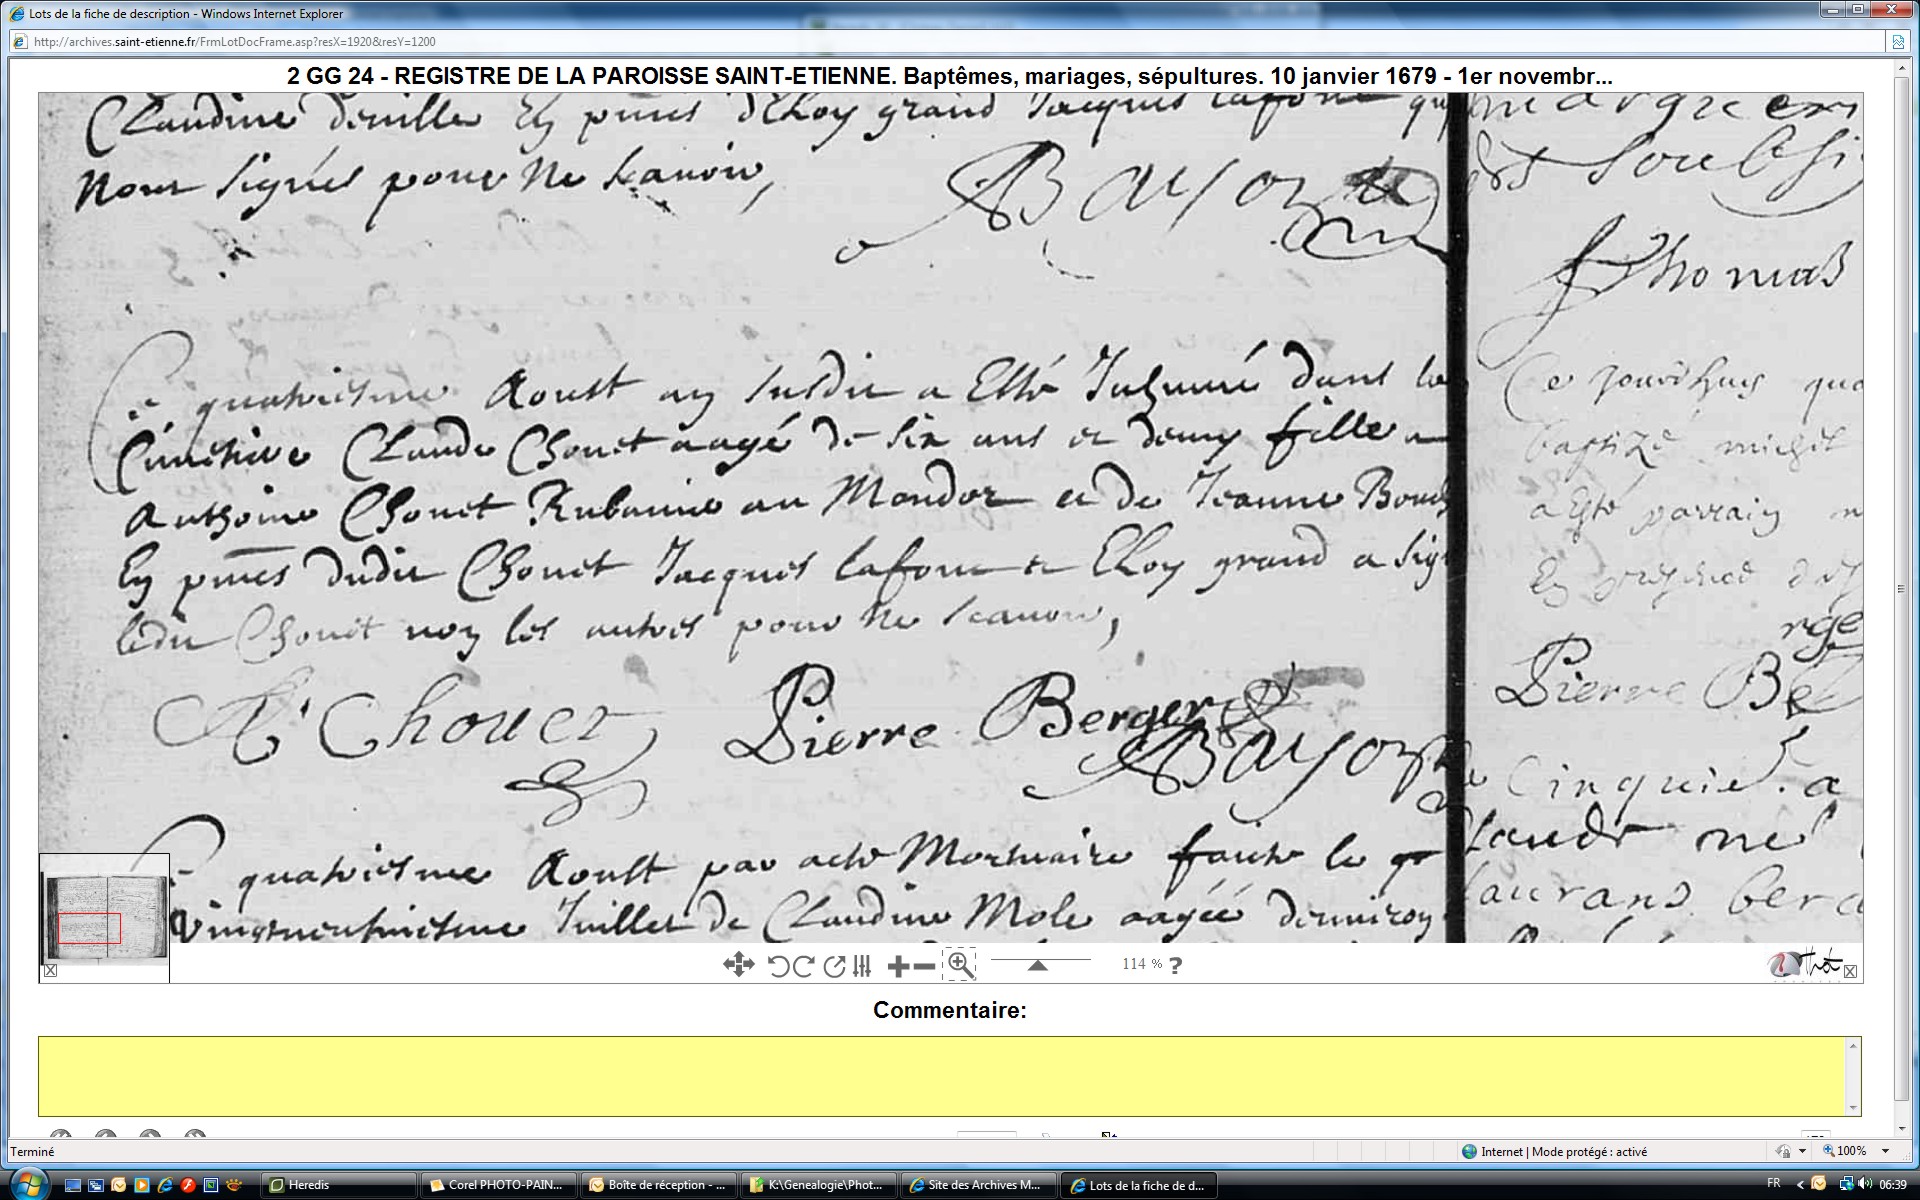 Lots de la fiche de description - Windows Internet Explorer
http://archives.saint-etienne.fr/FrmLotDocFrame.asp?resX=1920&resY=1200
2 GG 24 - REGISTRE DE LA PAROISSE SAINT-ETIENNE. Baptêmes, mariages, sépultures. 10 janvier 1679 - 1er novembr...
Claudine deville En pnces d'Eloy grand Jacques lafont qui
n'ont signés pour ne scavoir,
Bayon
Ce quatriesme Aoust an susdit a Esté Inhumé dans le
Cimetiere Claude Chouet aagé de six ans et demy fille a
Anthoine Chouet Rubannier au Mondor et de Jeanne
En pnces dudit Chouet Jacques lafont et Eloy grand a sig
ledit Chouet non les autres pour ne scavoir,
A Chouet Pierre Berger
Bayon
Ce quatriesme Aoust par acte Mortuaire faicte le
vingtneufviesme Juillet de Claudine Mole aagée denviron
Thomas
Ce jourdhuy qua
baptizé michel
a Esté parrain
En presence
Pierre Be
Cinquie. a
laurans bera
114 % ?
Commentaire:
Terminé
Internet | Mode protégé : activé
100%
Heredis
Corel PHOTO-PAIN...
Boîte de réception - ...
K:\Genealogie\Phot...
Site des Archives M...
Lots de la fiche de d...
FR
06:39